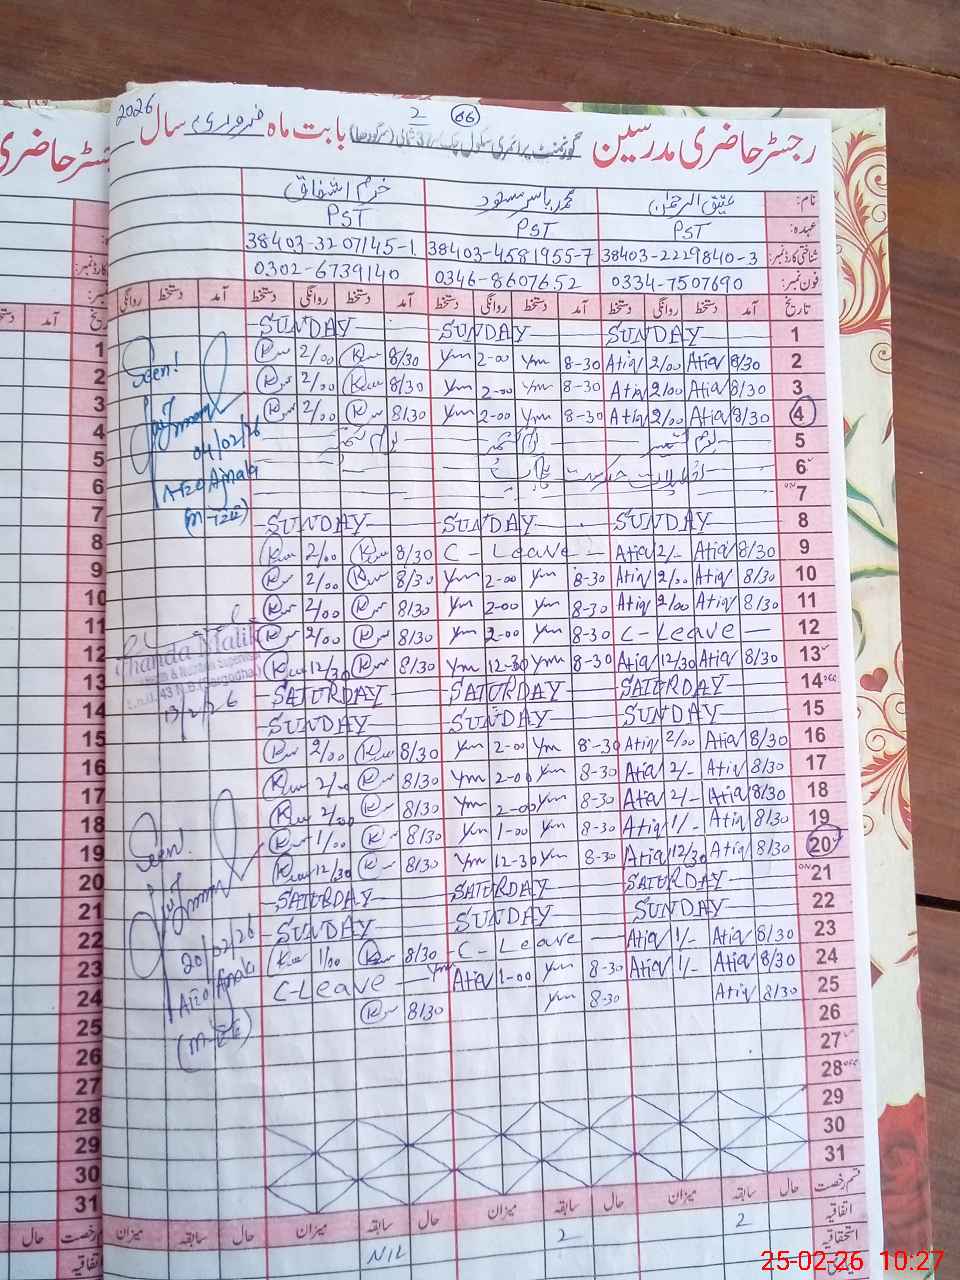 2026 2 06
رجسٹر حاضری مدرسین گورنمنٹ پرائمری سکول چک بابت ماہ فروری سال
نام: عتیق الرحمٰن محمد یاسر مسعود خرم اشفاق
عہدہ: PST PST PST
شناختی کارڈ نمبر: 38403-2229840-3 38403-4581955-7 38403-3207145-1
فون نمبر: 0334-7507690 0346-8607652 0302-6739140
تاریخ آمد دستخط روانگی دستخط آمد دستخط روانگی دستخط آمد دستخط روانگی دستخط آمد دستخط روانگی
SUNDAY SUNDAY SUNDAY 1
2/00 8/30 Ym 2-00 Ym 8-30 Atiq 2/00 Atiq 8/30 2
2/00 8/30 Ym 2-00 Ym 8-30 Atiq 2/00 Atiq 8/30 3
2/00 8/30 Ym 2-00 Ym 8-30 Atiq 2/00 Atiq 8/30 4
5
6
7
SUNDAY SUNDAY SUNDAY 8
2/00 8/30 C-Leave Atiq 2/- Atiq 8/30 9
2/00 8/30 Ym 2-00 Ym 8-30 Atiq 2/00 Atiq 8/30 10
2/00 8/30 Ym 2-00 Ym 8-30 Atiq 2/00 Atiq 8/30 11
2/00 8/30 Ym 2-00 Ym 8-30 C-Leave 12
12/30 8/30 Ym 12-30 Ym 8-30 Atiq 12/30 Atiq 8/30 13
SATURDAY SATURDAY SATURDAY 14
SUNDAY SUNDAY SUNDAY 15
2/00 8/30 Ym 2-00 Ym 8-30 Atiq 2/00 Atiq 8/30 16
2/00 8/30 Ym 2-00 Ym 8-30 Atiq 2/- Atiq 8/30 17
2/00 8/30 Ym 2-00 Ym 8-30 Atiq 2/- Atiq 8/30 18
1/00 8/30 Ym 1-00 Ym 8-30 Atiq 1/- Atiq 8/30 19
12/30 8/30 Ym 12-30 Ym 8-30 Atiq 12/30 Atiq 8/30 20
SATURDAY SATURDAY SATURDAY 21
SUNDAY SUNDAY SUNDAY 22
1/00 8/30 C-Leave Atiq 1/- Atiq 8/30 23
C-Leave Ym Atiq 1-00 Ym 8-30 Atiq 1/- Atiq 8/30 24
8/30 Ym 8-30 Atiq 8/30 25
26
27
28
29
30
31
قسم رخصت حال سابقہ میزان حال سابقہ میزان حال سابقہ میزان حال سابقہ میزان
اتفاقیہ 2 2 NIL
استحقاقیہ
Seen!
04/02/26
AEO Ajnala
13/2/26
Seen!
20/02/26
AEO Ajnala
1
2
3
4
5
6
7
8
9
10
11
12
13
14
15
16
17
18
19
20
21
22
23
24
25
26
27
28
29
30
31
25-02-26 10:27